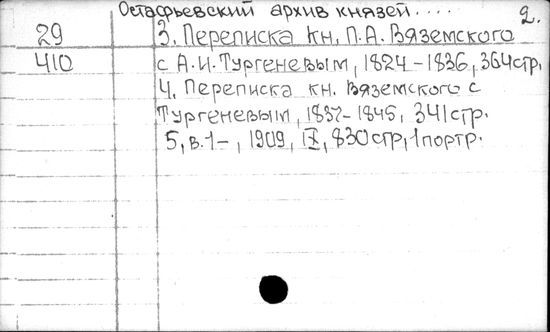 Остафьевский архив князей..... 2.
29 3. Переписка кн. П.А. Вяземского
410 с А.И. Тургеневым, 1824-1836, 364стр.
4. Переписка кн. Вяземского с
Тургеневым, 1837-1845, 341стр.
5, в.1-, 1909, IX, 830стр, 1портр.